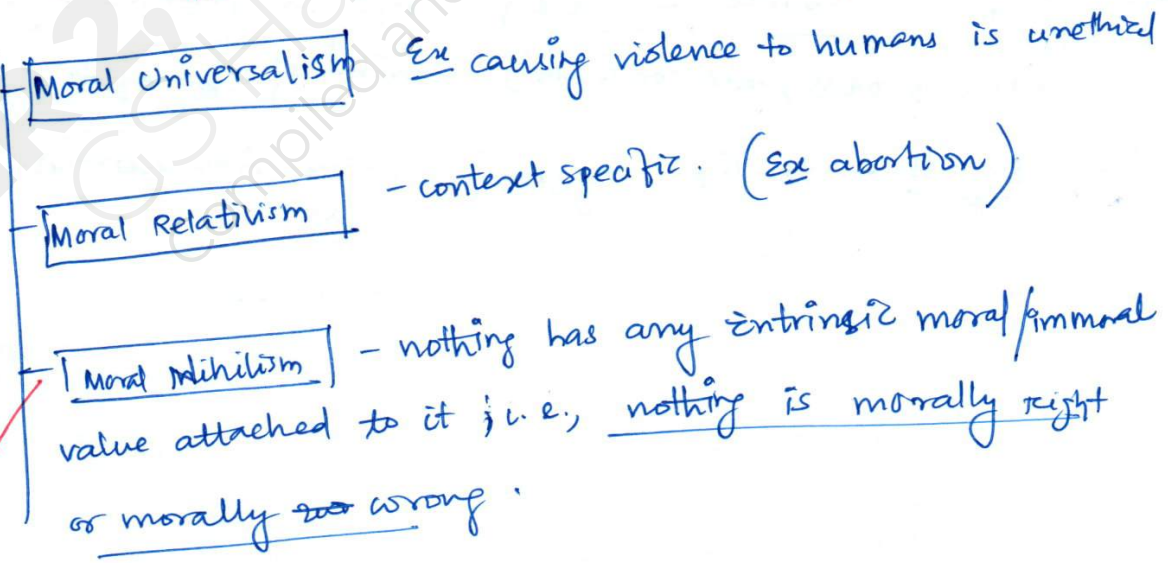 Moral Universalism Ex causing violence to humans is unethical
Moral Relativism - context specific. (Ex abortion)
Moral Nihilism - nothing has any intrinsic moral/immoral
value attached to it ; i.e., nothing is morally right
or morally wrong.